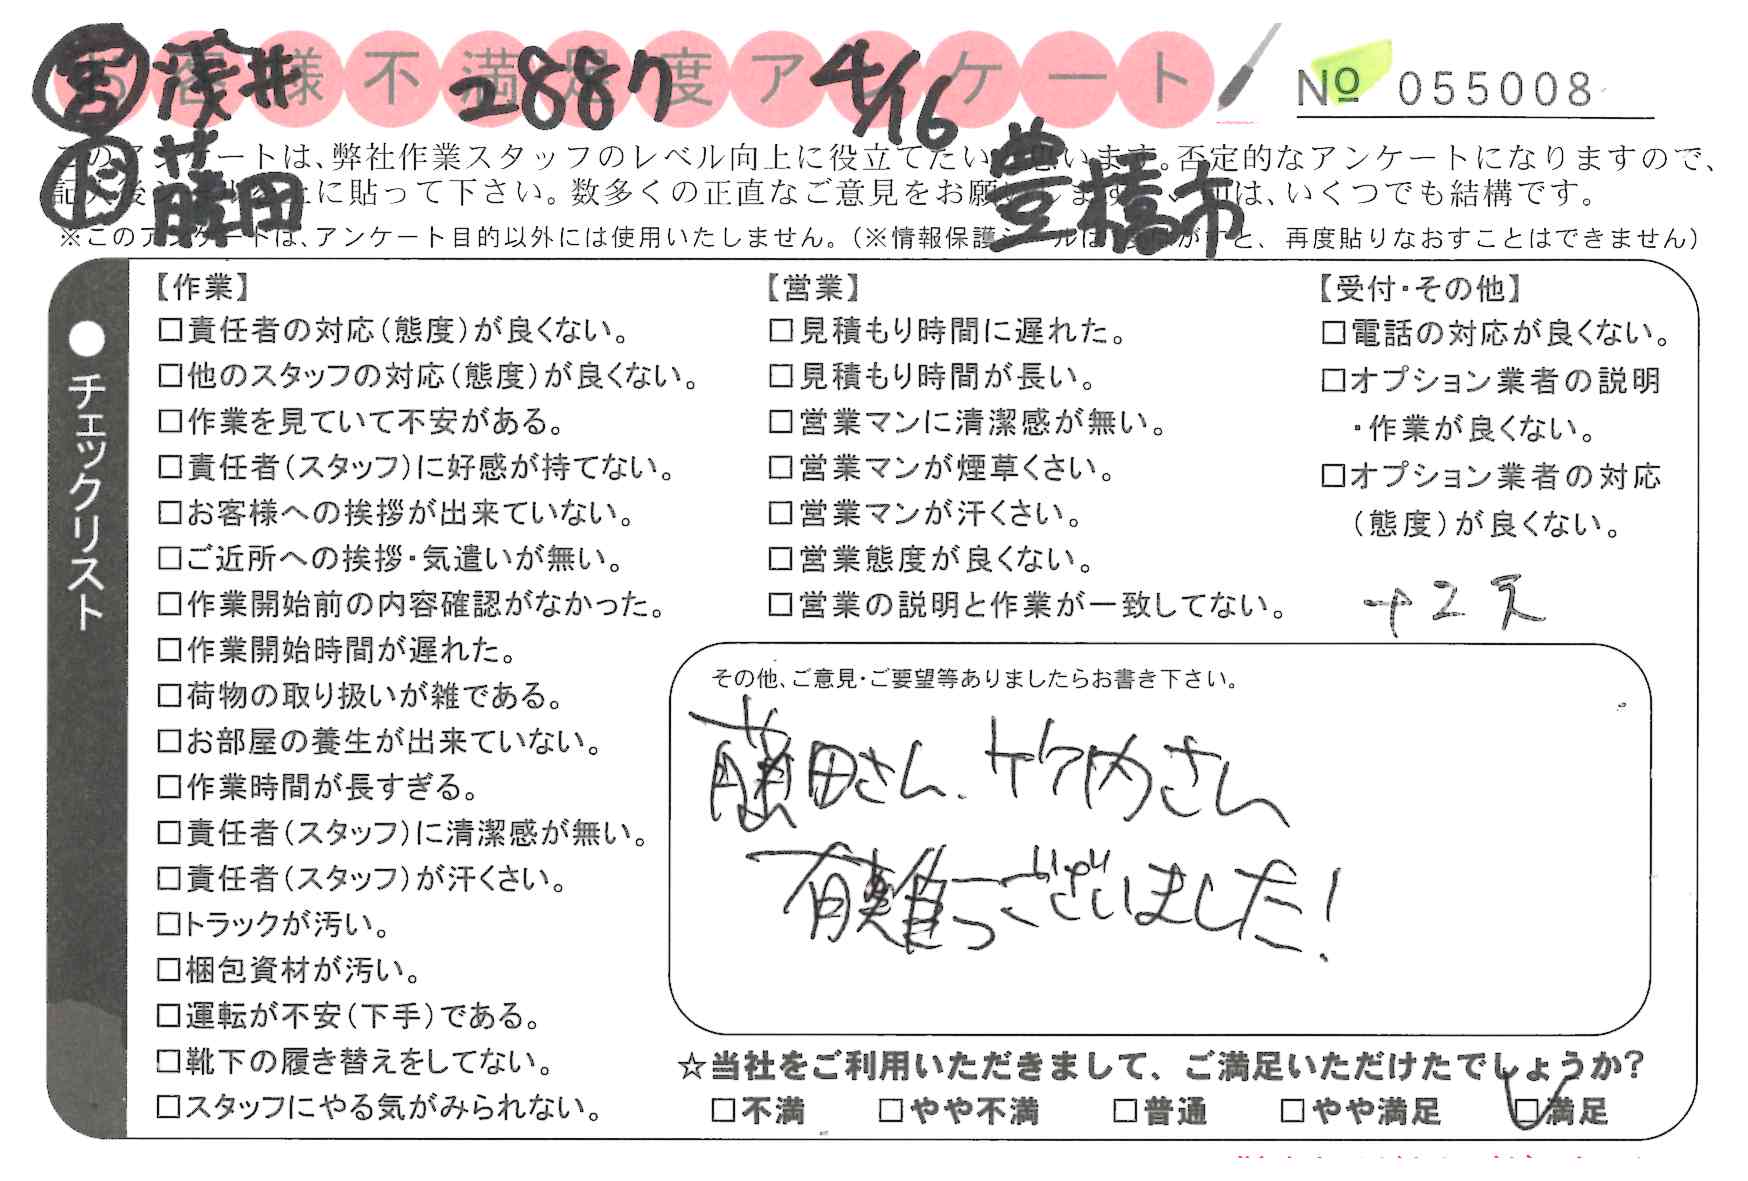 お客様不満足度アンケート
営 浅井 2887 4/16
No 055008
作 藤田 豊橋市
このアンケートは、弊社作業スタッフのレベル向上に役立てたいと思います。否定的なアンケートになりますので、
記入後シールを上に貼って下さい。数多くの正直なご意見をお願いします。は、いくつでも結構です。
※このアンケートは、アンケート目的以外には使用いたしません。(※情報保護シールは1度はがすと、再度貼りなおすことはできません)
●チェックリスト
【作業】
□責任者の対応(態度)が良くない。
□他のスタッフの対応(態度)が良くない。
□作業を見ていて不安がある。
□責任者(スタッフ)に好感が持てない。
□お客様への挨拶が出来ていない。
□ご近所への挨拶・気遣いが無い。
□作業開始前の内容確認がなかった。
□作業開始時間が遅れた。
□荷物の取り扱いが雑である。
□お部屋の養生が出来ていない。
□作業時間が長すぎる。
□責任者(スタッフ)に清潔感が無い。
□責任者(スタッフ)が汗くさい。
□トラックが汚い。
□梱包資材が汚い。
□運転が不安(下手)である。
□靴下の履き替えをしてない。
□スタッフにやる気がみられない。
【営業】
□見積もり時間に遅れた。
□見積もり時間が長い。
□営業マンに清潔感が無い。
□営業マンが煙草くさい。
□営業マンが汗くさい。
□営業態度が良くない。
□営業の説明と作業が一致してない。
【受付・その他】
□電話の対応が良くない。
□オプション業者の説明
・作業が良くない。
□オプション業者の対応
(態度)が良くない。
+2
その他、ご意見・ご要望等ありましたらお書き下さい。
藤田さん、竹内さん
有難うございました!
☆当社をご利用いただきまして、ご満足いただけたでしょうか?
□不満 □やや不満 □普通 □やや満足 □満足